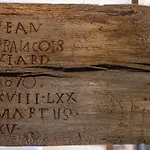 JEAN
FRANCOIS
LIARD
1870.
XVIII·LXX
MARTUS·
XV